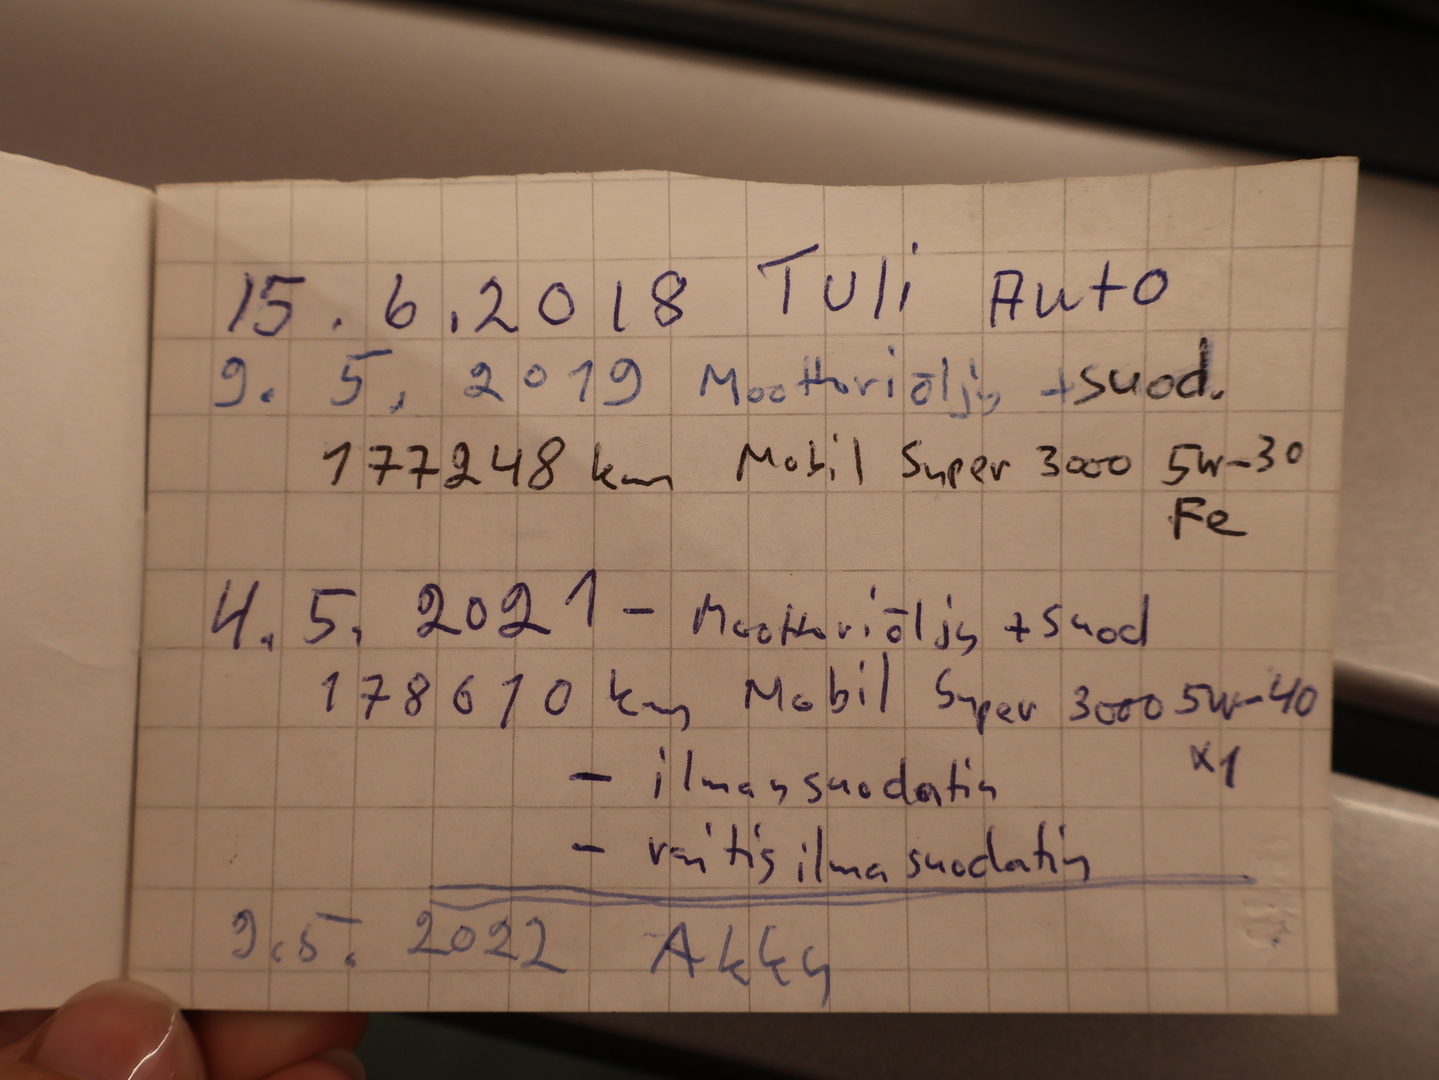 15.6.2018 Tuli Auto
9.5.2019 Moottoriöljy +suod.
177248 km Mobil Super 3000 5w-30
Fe
4.5.2021 - Moottoriöljy +suod
178610 km Mobil Super 3000 5w-40
x1
- ilmansuodatin
- raitisilmasuodatin
9.5.2022 Akku